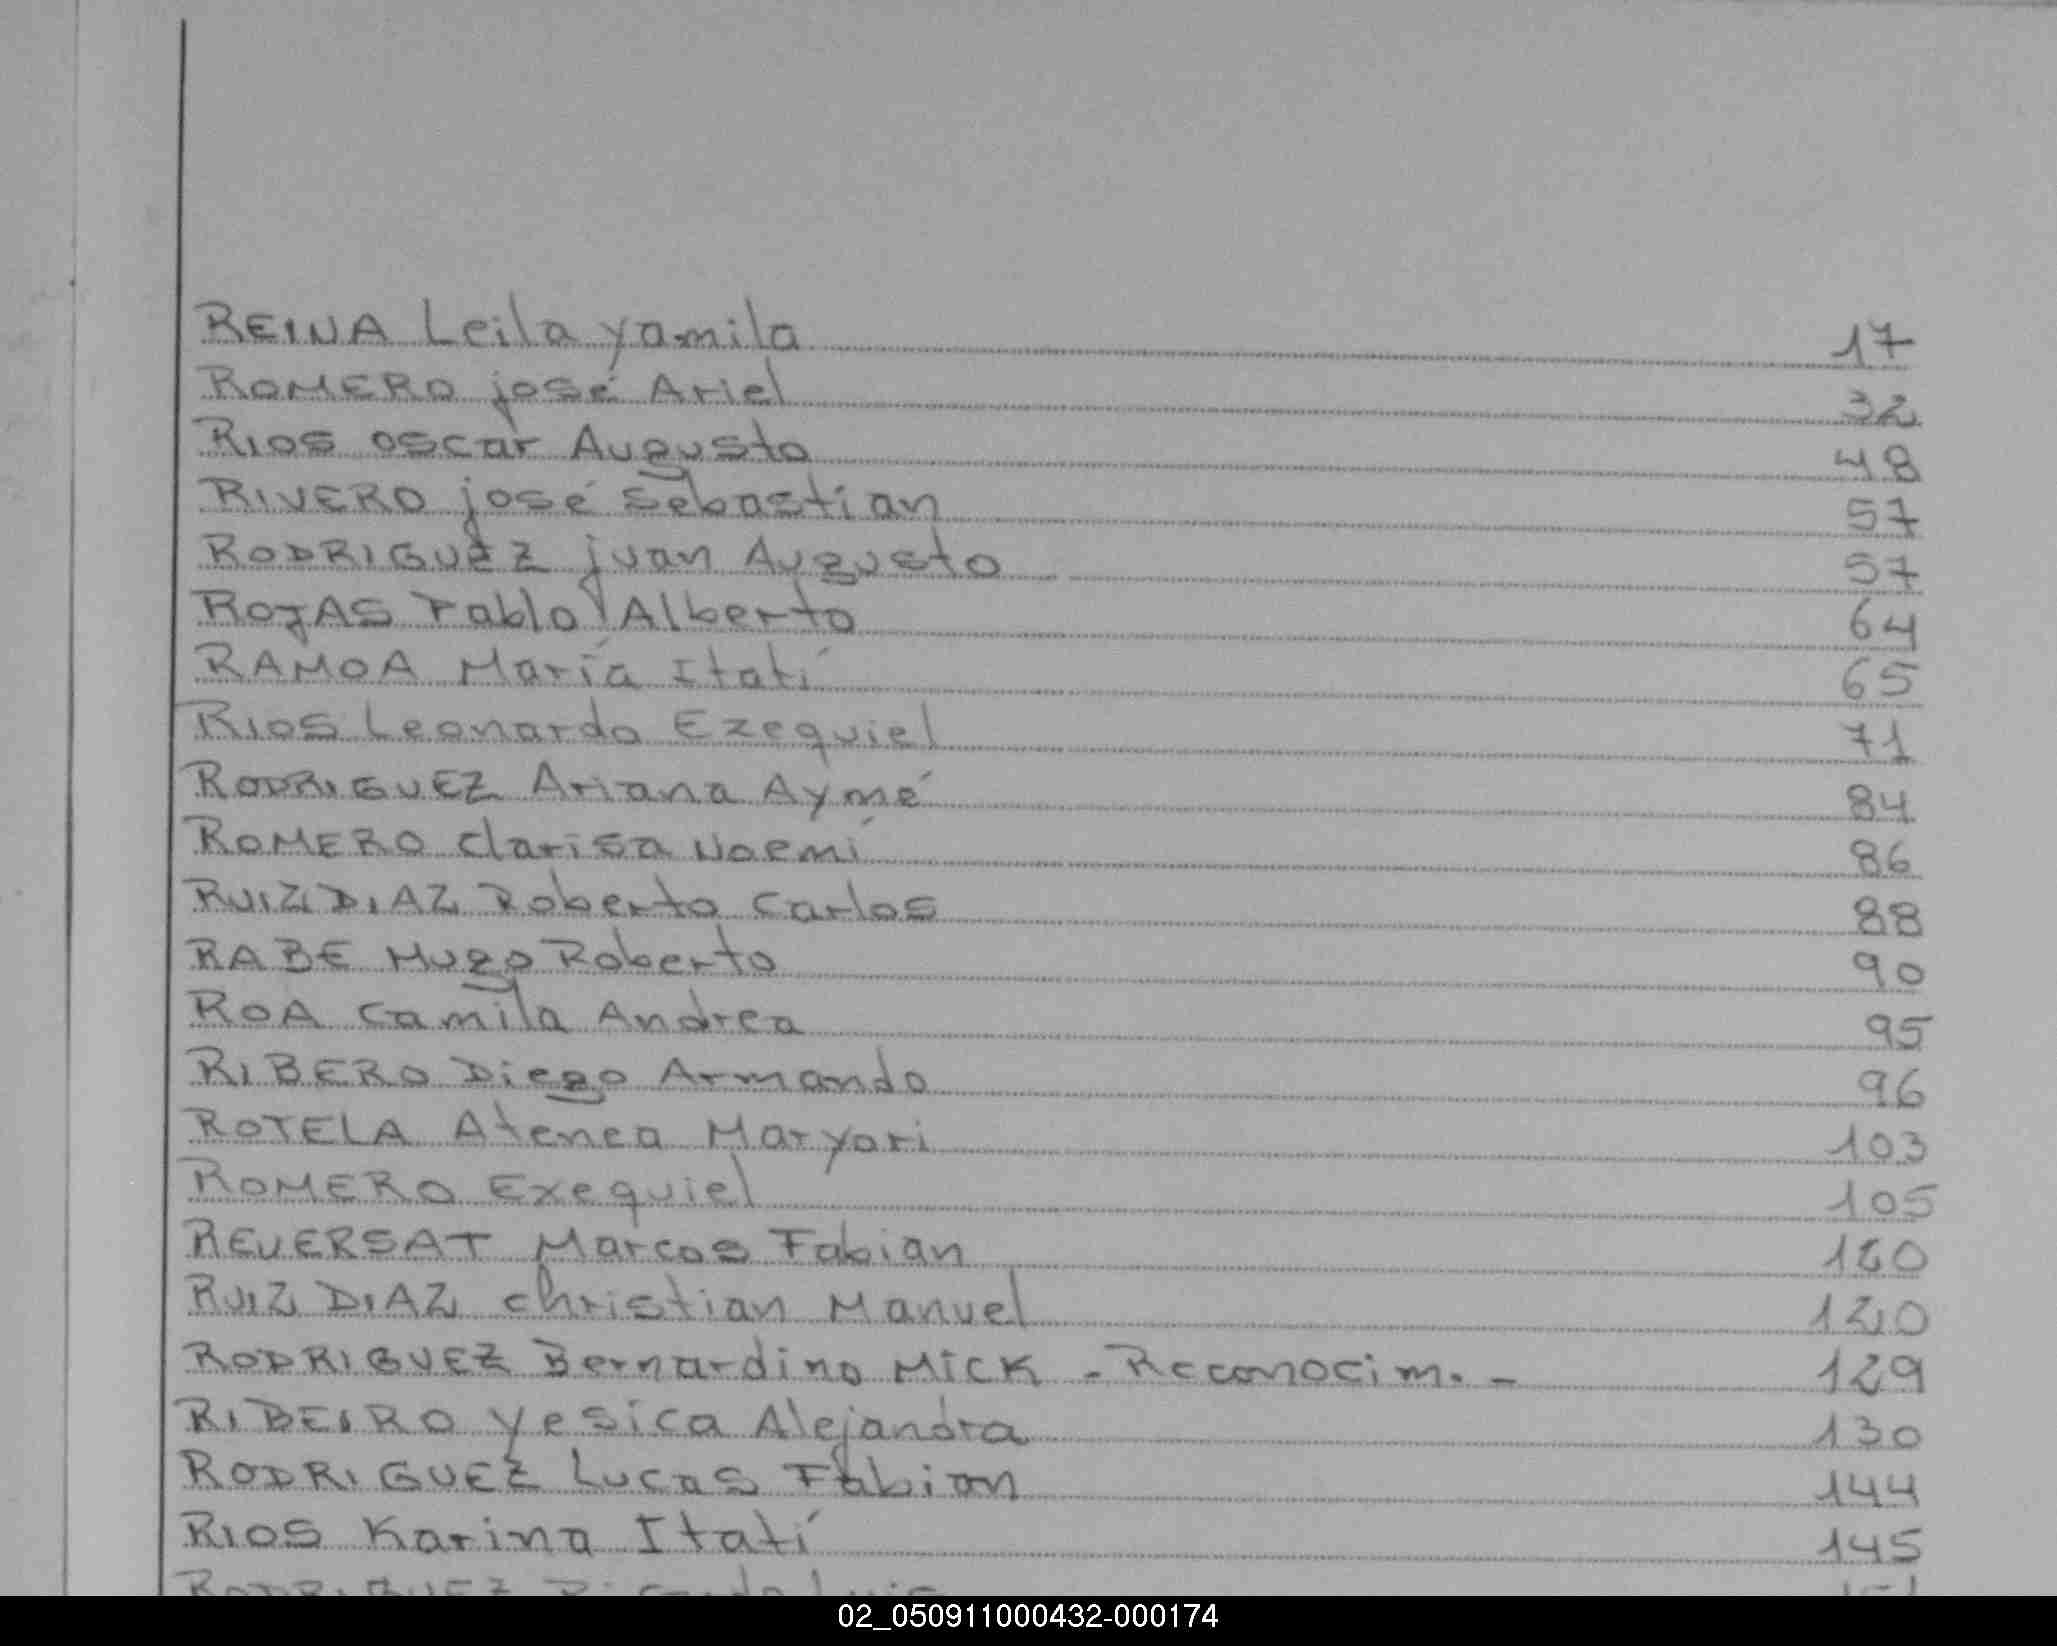 REINA Leila yamila 17
ROMERO josé Ariel 32
RIOS oscar Augusto 48
RIVERO josé sebastian 57
RODRIGUEZ juan Augusto 57
ROJAS Pablo Alberto 64
RAMOA María Itatí 65
RIOS Leonardo Ezequiel 71
RODRIGUEZ Ariana Aymé 84
ROMERO clarisa Noemí 86
RUIZ DIAZ Roberto carlos 88
RABE Hugo Roberto 90
ROA camila Andrea 95
RIBERO Diego Armando 96
ROTELA Atenea Maryori 103
ROMERO Exequiel 105
REVERSAT Marcos Fabian 120
RUIZ DIAZ christian Manuel 120
RODRIGUEZ Bernardino MICK - Reconocim. - 129
RIBEIRO yesica Alejandra 130
RODRIGUEZ Lucas Fabian 144
RIOS Karina Itatí 145
RODRIGUEZ Ricardo Luis
02_050911000432-000174